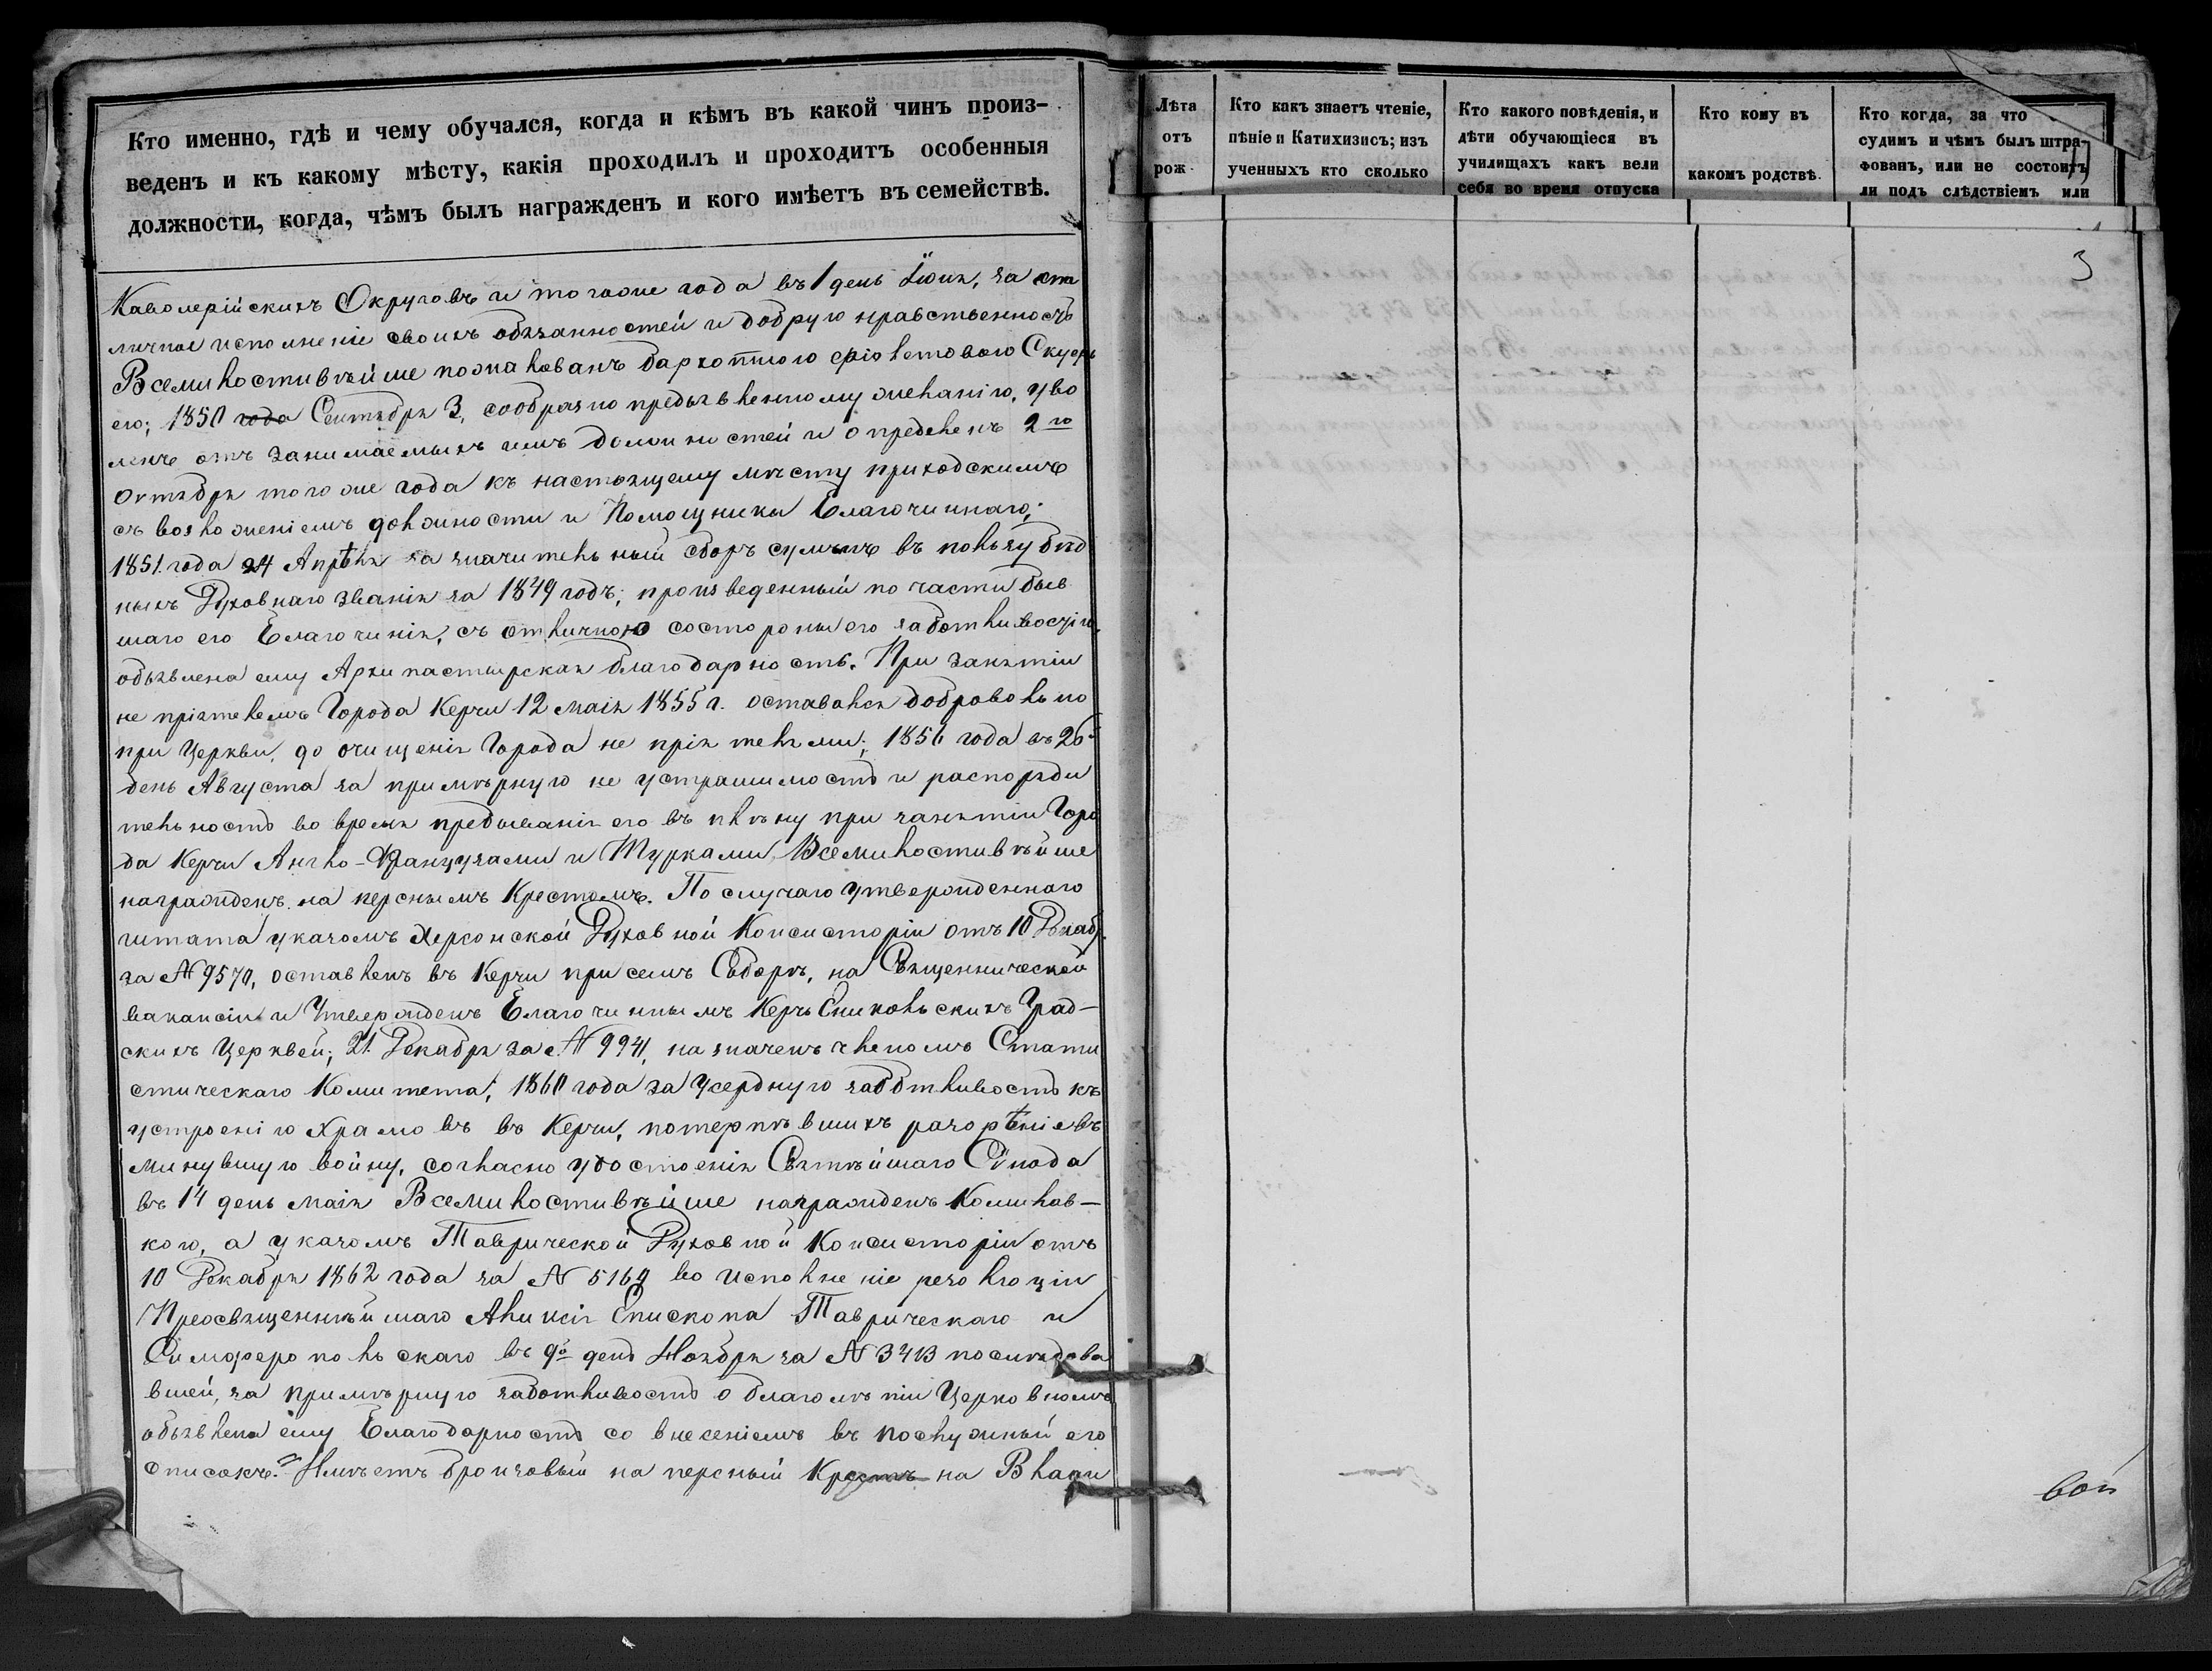 Кто именно, гдѣ и чему обучался, когда и кѣмъ въ какой чинъ произ-
веденъ и къ какому мѣсту, какія проходилъ и проходитъ особенныя
должности, когда, чѣмъ былъ награжденъ и кого имѣетъ въ семействѣ.
Каволерійскихъ Округовъ и того же года въ 1 день Іюня, за от
личное исполненіе своихъ обязанностей и добрую нравственность
Всемилостивѣйше пожалованъ бархотною фіолетовою Скуфь
ею; 1850 года Сентября 3, сообразно предъявленному желанію, уво
ленъ отъ занимаемыхъ имъ должностей и опредѣленъ 2го
октября того же года къ настоящему мѣсту приходскимъ
съ возложеніемъ должности и Помощника Благочиннаго;
1851 года 24 Апрѣля за значительный сборъ суммъ въ пользу бѣд
ныхъ Духовнаго званія за 1849 годъ, произведенный по части быв
шаго его Благочинія, съ отличною со стороны его заботливостію
объявлена ему Архипастырская благодарность. При занятіи
непріятелемъ Города Керчи 12 маія 1855 г. оставался добровольно
при Церкви, до очищенія Города непріятелями; 1856 года въ 26й
день Августа за примѣрную неустрашимость и распоряди
тельность во время пребыванія его въ плѣну при занятіи Горо
да Керчи Англо-Французами и Турками, Всемилостивѣйше
награжденъ наперснымъ Крестомъ. По случаю утвержденнаго
штата указомъ Херсонской Духовной Консисторіи отъ 10 Декаб.
за № 9570, оставленъ въ Керчи при семъ Соборѣ, на Священнической
вакансіи и Утвержденъ Благочиннымъ Керчь Еникольскихъ Град-
скихъ Церквей; 21 Декабря за № 9941, назначенъ членомъ Стати
стическаго Комитета; 1860 года за усердную заботливость къ
устроенію Храмовъ въ Керчи, потерпѣвшихъ разорѣніе въ
минувшую войну, согласно удостоенія Святѣйшаго Сѵнода
въ 14 день маія Всемилостивѣйше награжденъ Камилав-
кою, а указомъ Таврической Духовной Консисторіи отъ
10 Декабря 1862 года за № 5169 во исполненіе резолюціи
Преосвященнѣйшаго Алексія Епископа Таврическаго и
Симферопольскаго въ 9й день Ноября за № 3413 послѣдова
вшей, за примѣрную заботливость о благолѣпіи Церковномъ
объявлена ему Благодарность со внесеніемъ въ послужный его
списокъ. Имѣетъ бронзовый наперсный Крестъ на Влади
Лѣта
отъ
рож.
Кто какъ знаетъ чтеніе,
пѣніе и Катихизисъ; изъ
ученныхъ кто сколько
Кто какого поведенія, и
дѣти обучающіеся въ
училищахъ какъ вели
себя во время отпуска
Кто кому въ
какомъ родствѣ.
Кто когда, за что
судимъ и чѣмъ былъ штра-
фованъ, или не состоитъ
ли подъ слѣдствіемъ или
3